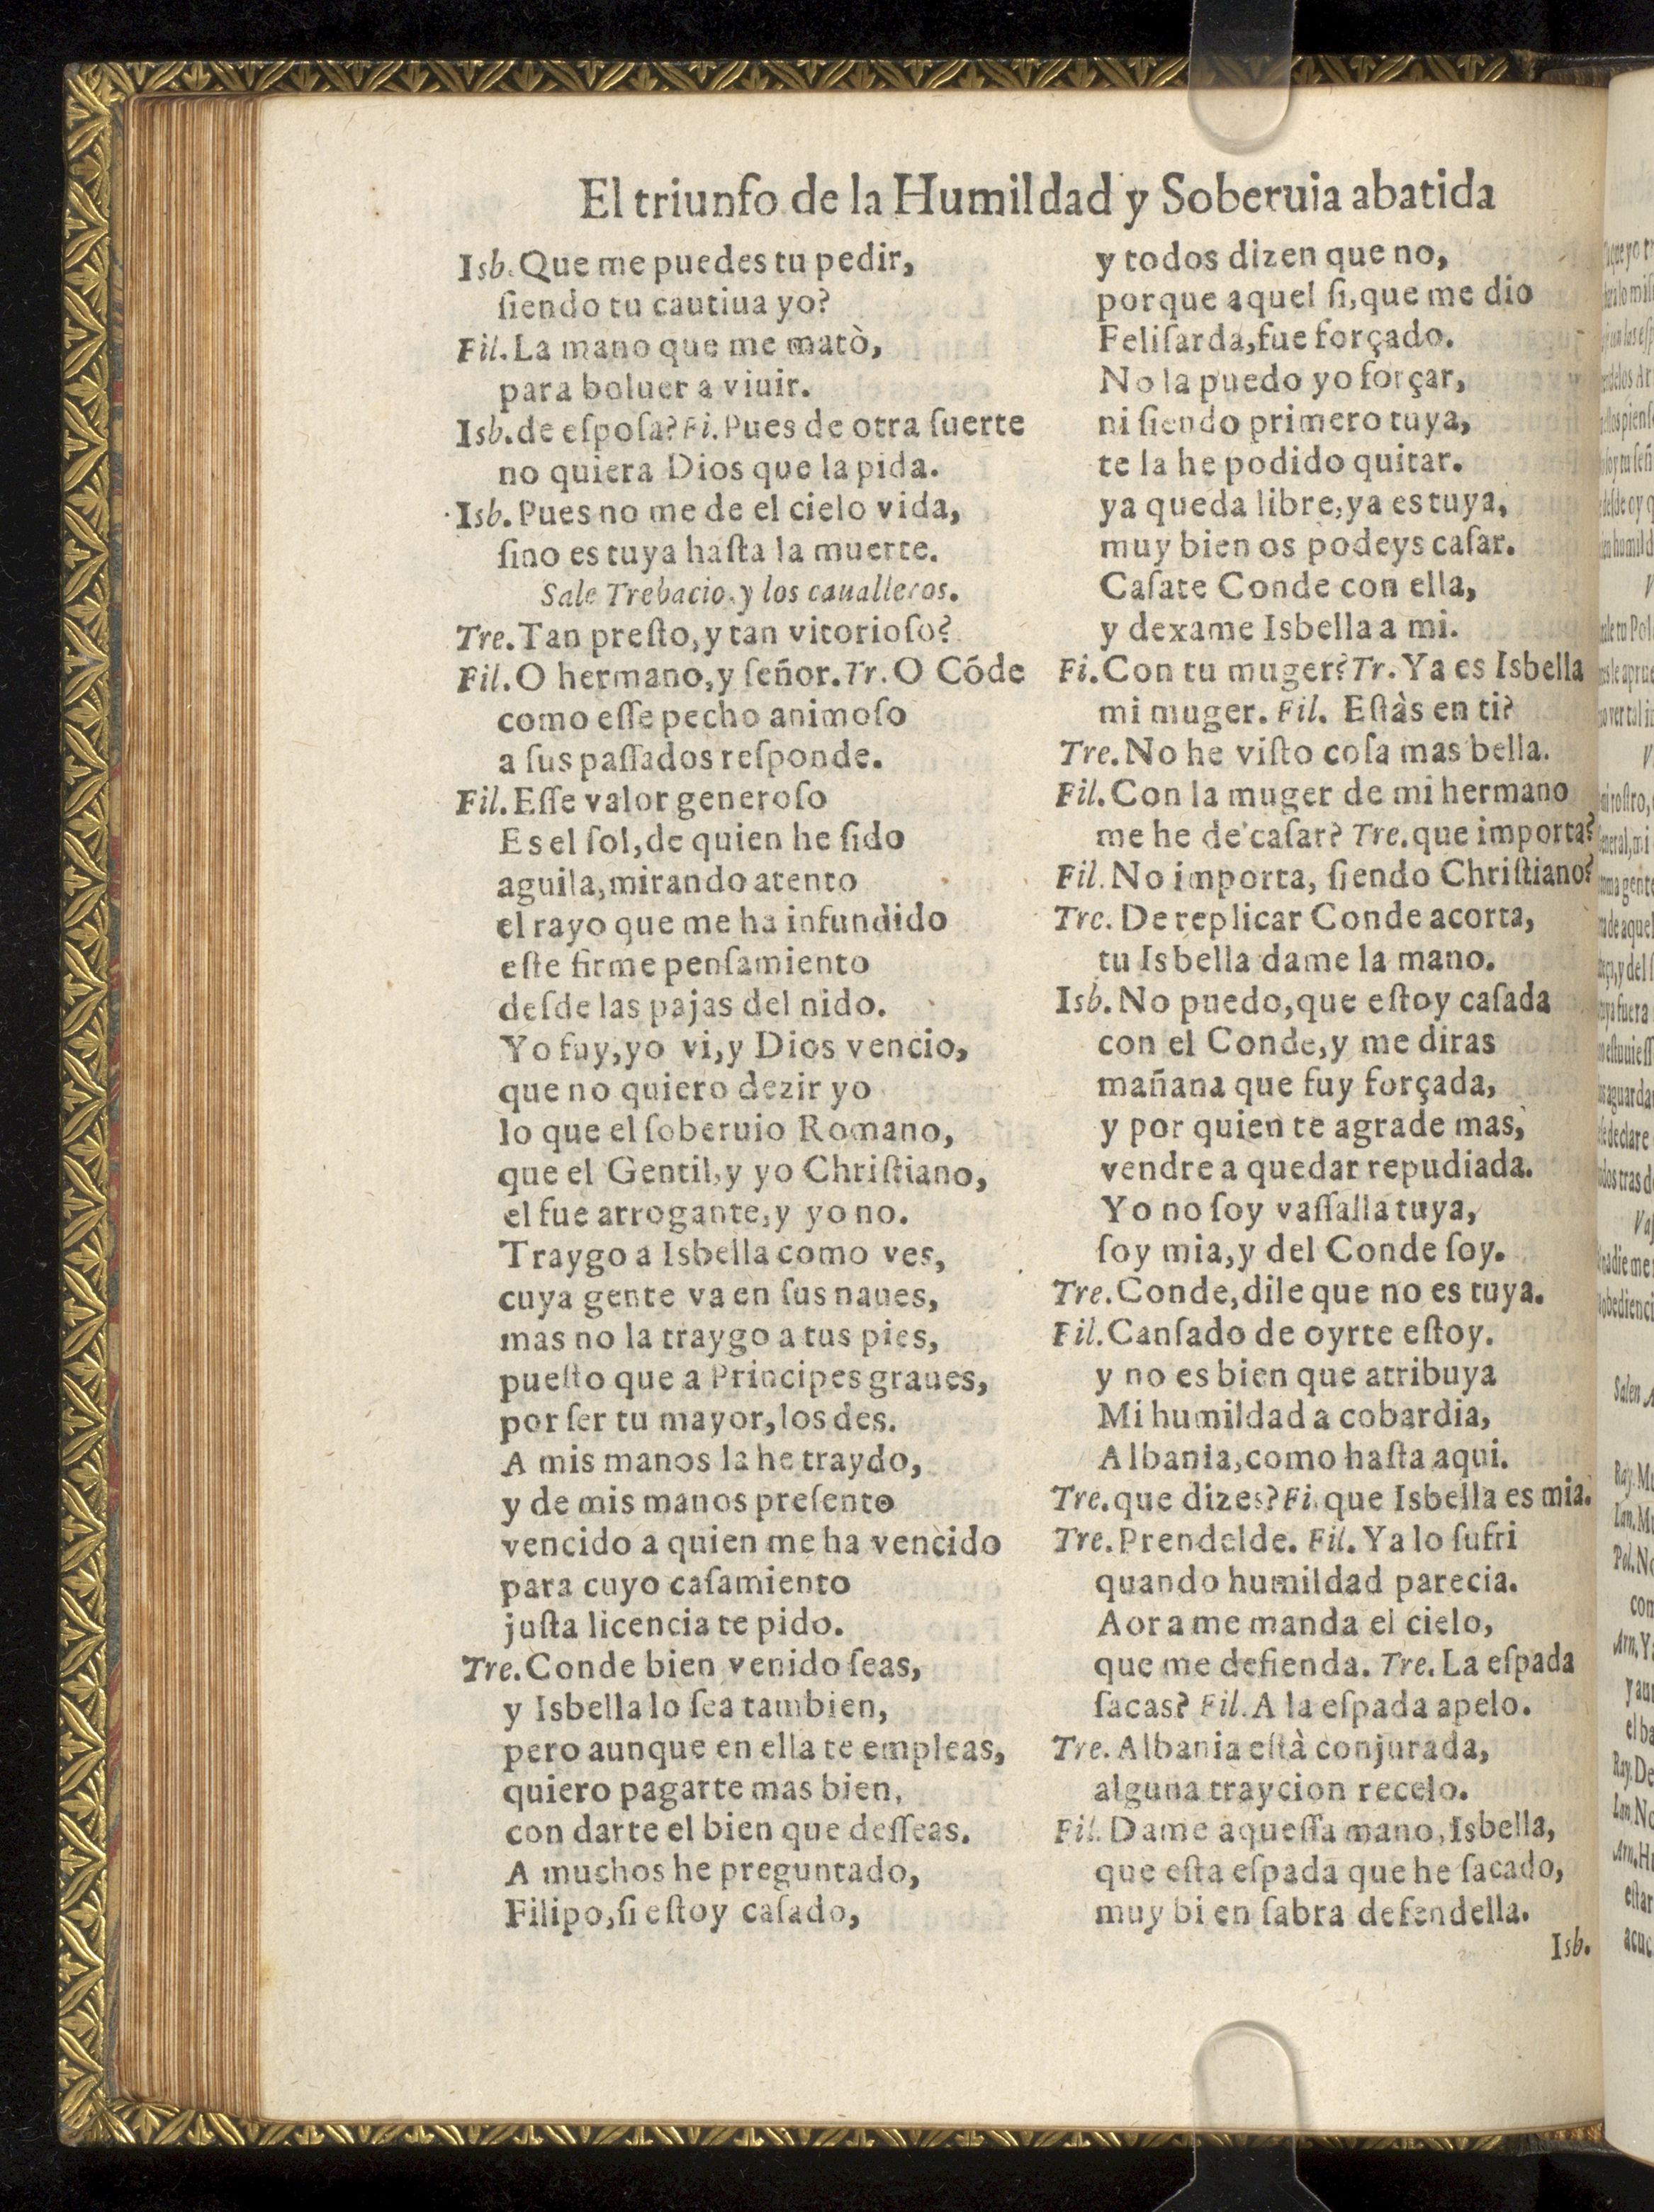 El triunfo de la Humildad y Soberuia abatida
Isb. Que me puedes tu pedir,
ſiendo tu cautiua yo?
Fil. La mano que me matò,
para boluer a viuir.
Isb. de eſpoſa? Fi. Pues de otra ſuerte
no quiera Dios que la pida.
Isb. Pues no me de el cielo vida,
ſino es tuya haſta la muerte.
Sale Trebacio, y los caualleros.
Tre. Tan preſto, y tan vitorioſo?
Fil. O hermano, y ſeñor. Tr. O Códe
como eſſe pecho animoſo
a ſus paſſados reſponde.
Fil. Eſſe valor generoſo
Es el ſol, de quien he ſido
aguila, mirando atento
el rayo que me ha infundido
eſte firme penſamiento
deſde las pajas del nido.
Yo fuy, yo vi, y Dios vencio,
que no quiero dezir yo
lo que el ſoberuio Romano,
que el Gentil, y yo Chriſtiano,
el fue arrogante, y yo no.
Traygo a Isbella como ves,
cuya gente va en ſus naues,
mas no la traygo a tus pies,
pueſto que a Principes graues,
por ſer tu mayor, los des.
A mis manos la he traydo,
y de mis manos preſento
vencido a quien me ha vencido
para cuyo caſamiento
juſta licencia te pido.
Tre. Conde bien venido ſeas,
y Isbella lo ſea tambien,
pero aunque en ella te empleas,
quiero pagarte mas bien,
con darte el bien que deſſeas.
A muchos he preguntado,
Filipo, ſi eſtoy caſado,
y todos dizen que no,
porque aquel ſi, que me dio
Feliſarda, fue forçado.
No la puedo yo forçar,
ni ſiendo primero tuya,
te la he podido quitar.
ya queda libre, ya es tuya,
muy bien os podeys caſar.
Caſate Conde con ella,
y dexame Isbella a mi.
Fi. Con tu muger? Tr. Ya es Isbella
mi muger. Fil. Eſtàs en ti?
Tre. No he viſto coſa mas bella.
Fil. Con la muger de mi hermano
me he de caſar? Tre. que importa?
Fil. No importa, ſiendo Chriſtiano?
Tre. De replicar Conde acorta,
tu Isbella dame la mano.
Isb. No puedo, que eſtoy caſada
con el Conde, y me diras
mañana que fuy forçada,
y por quien te agrade mas,
vendre a quedar repudiada.
Yo no ſoy vaſſalla tuya,
ſoy mia, y del Conde ſoy.
Tre. Conde, dile que no es tuya.
Fil. Canſado de oyrte eſtoy.
y no es bien que atribuya
Mi humildad a cobardia,
Albania, como haſta aqui.
Tre. que dizes? Fi. que Isbella es mia.
Tre. Prendelde. Fil. Ya lo ſufri
quando humildad parecia.
Aora me manda el cielo,
que me defienda. Tre. La eſpada
ſacas? Fil. A la eſpada apelo.
Tre. Albania eſtà conjurada,
alguna traycion recelo.
Fil. Dame aqueſſa mano, Isbella,
que eſta eſpada que he ſacado,
muy bien ſabra defendella.
Isb.